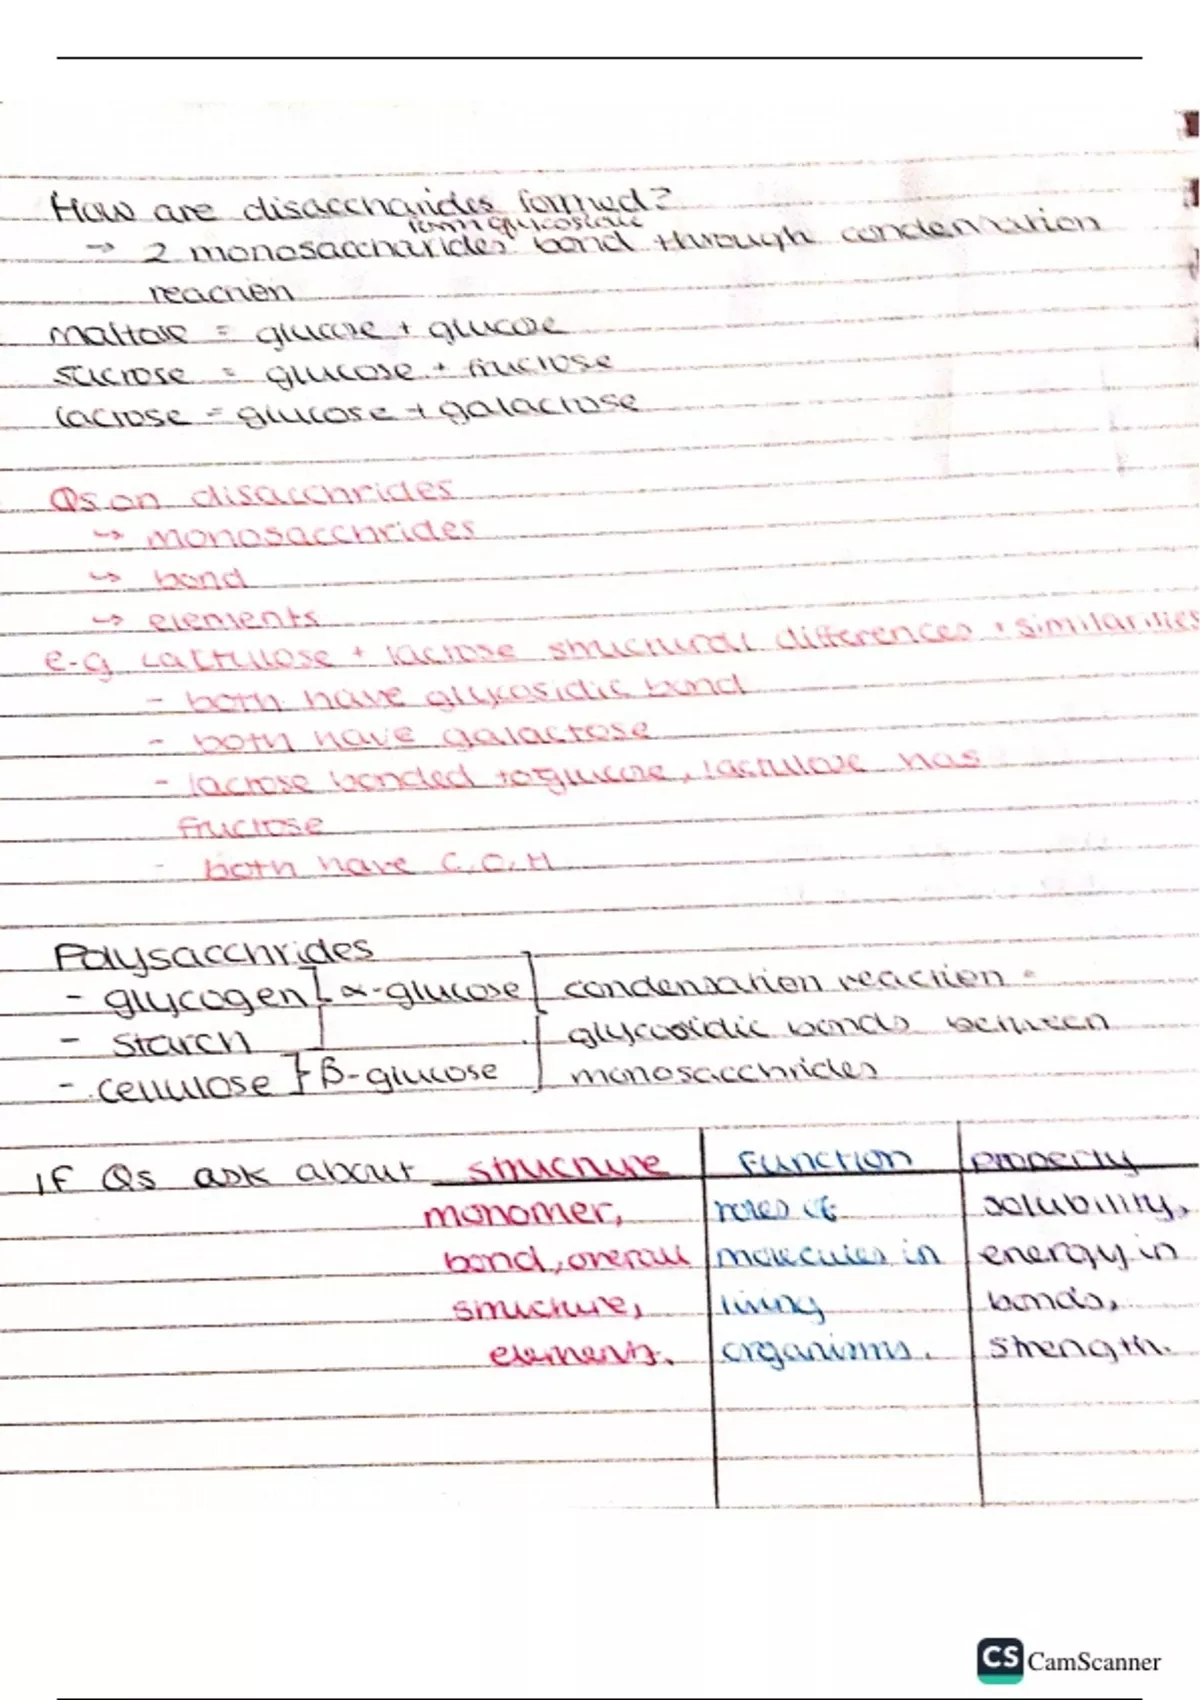 How are disaccharides formed?
form glycosidic
→ 2 monosaccharides bond through condensation
reaction
maltose = glucose + glucose
sucrose = glucose + fructose
lactose = glucose + galactose
Qs on disacchrides
↳ monosacchrides
↳ bond
↳ elements
e.g lactulose + lactose structural differences + similarities
- both have glycosidic bond
- both have galactose
- lactose bonded to glucose, lactulose has
fructose
- both have C, O, H
Polysacchrides
- glycogen α-glucose condensation reaction =
- starch glycosidic bonds between
- cellulose β-glucose monosacchrides
If Qs ask about structure function property
monomer, roles of solubility,
bond, overall molecules in energy in
structure, living bonds,
elements. organisms. strength.
CS CamScanner